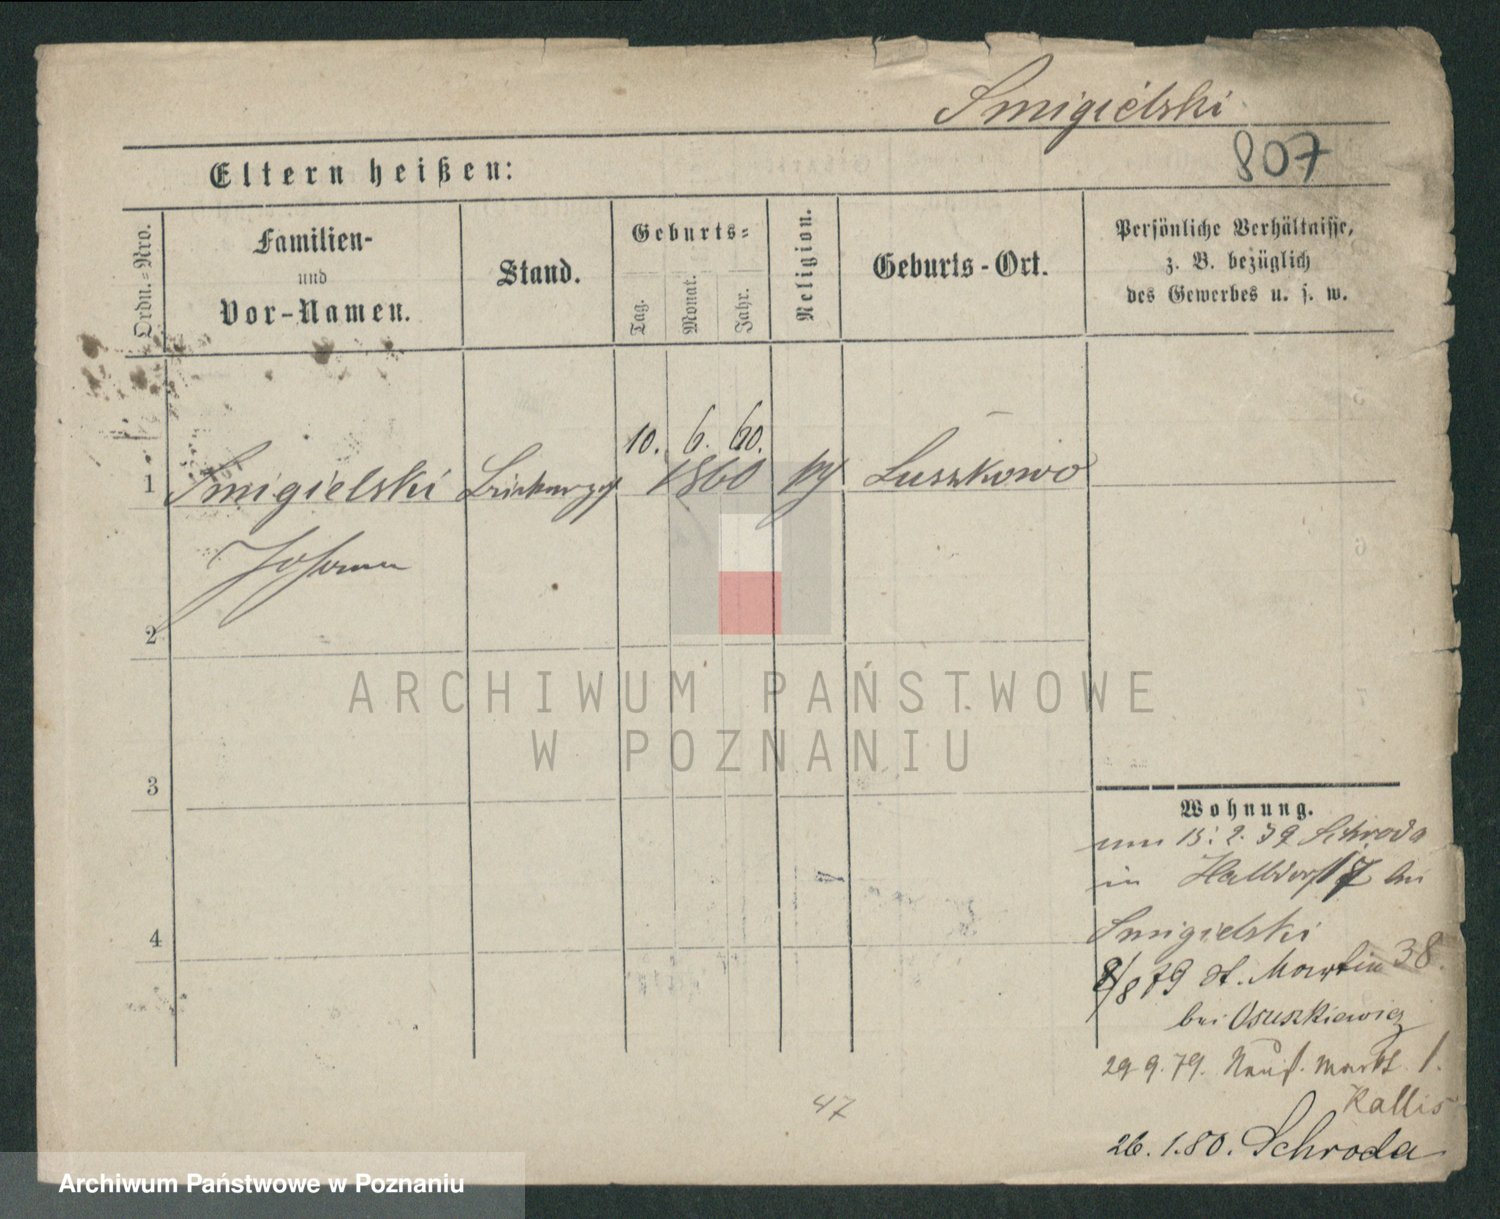 Smigielski
807
Eltern heißen:
Ordn.-Nro.
Familien-
und
Vor-Namen.
Stand.
Geburts-
Tag.
Monat.
Jahr.
Religion.
Geburts-Ort.
Persönliche Verhältnisse,
z. B. bezüglich
des Gewerbes u. s. w.
10. 6. 60.
1 Smigielski 1860 Luszkowo
Johann
2
3
4
Wohnung.
15. 2. 79 Schroda
in Halbdorf 17 bei
Smigielski
8/8 79 St. Martin 38.
bei
29 9. 79. Neust. Markt 1.
Kallis
26. 1. 80. Schroda
47
ARCHIWUM PAŃSTWOWE
W POZNANIU
Archiwum Państwowe w Poznaniu